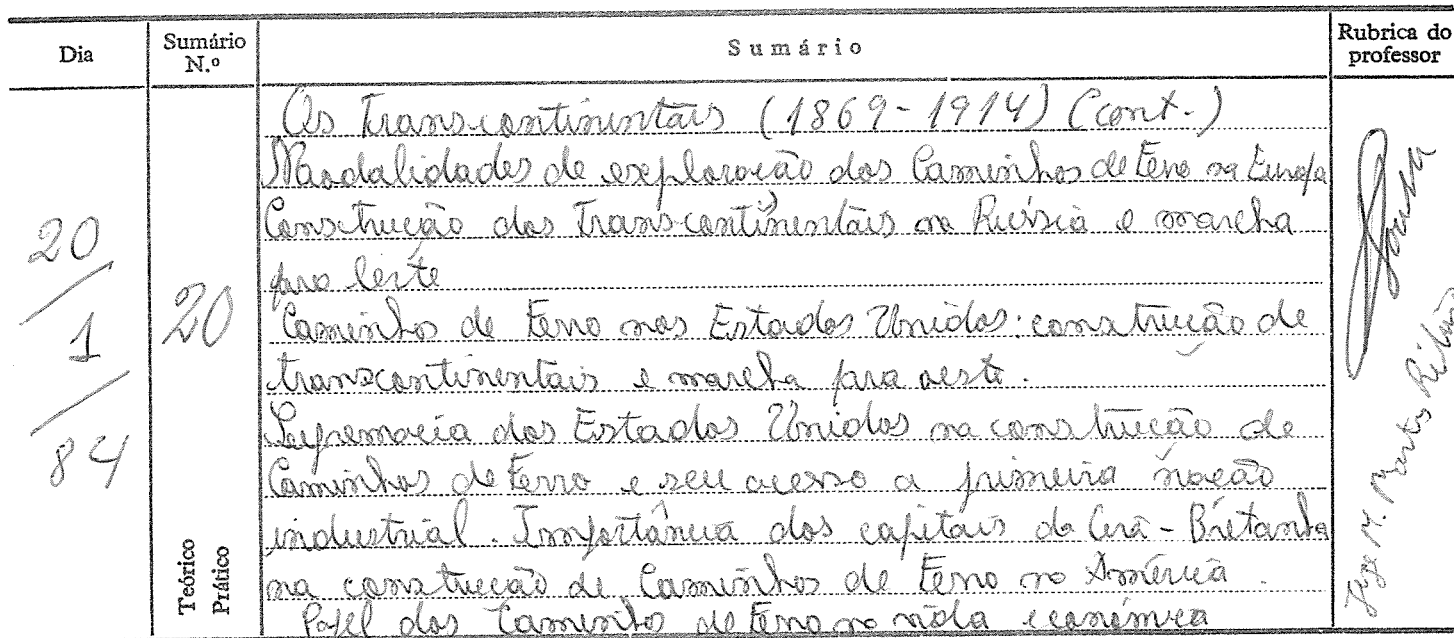 Dia
Sumário N.º
Sumário
Rubrica do professor
20/1/84
20
Teórico
Prático
Os Transcontinentais (1869-1914) (cont.)
Modalidades de exploração dos Caminhos de Ferro na Europa
Construção dos Transcontinentais na Rússia e marcha
para leste
Caminhos de Ferro nos Estados Unidos: construção de
transcontinentais e marcha para oeste.
Supremacia dos Estados Unidos na construção de
Caminhos de Ferro e seu acesso a primeira nação
industrial. Importância dos capitais da Grã-Bretanha
na construção de Caminhos de Ferro na América.
Papel dos Caminhos de Ferro na vida económica